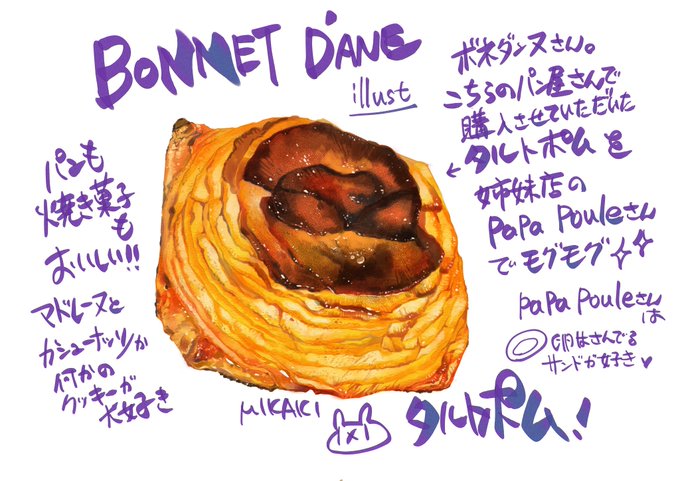 BONNET D'ANE
illust
ボネダンヌさん。
こちらのパン屋さんで
購入させていただいた
←タルトポムを
姉妹店の
PaPa Pouleさん
でモグモグ✧✧
PaPa Pouleさん
は
卵はさんでる
サンドが好き♥
パンも
焼き菓子
も
おいしい!!
マドレーヌと
カシューナッツか
何かの
クッキーが
大好き
MIKAKI
タルトポム!